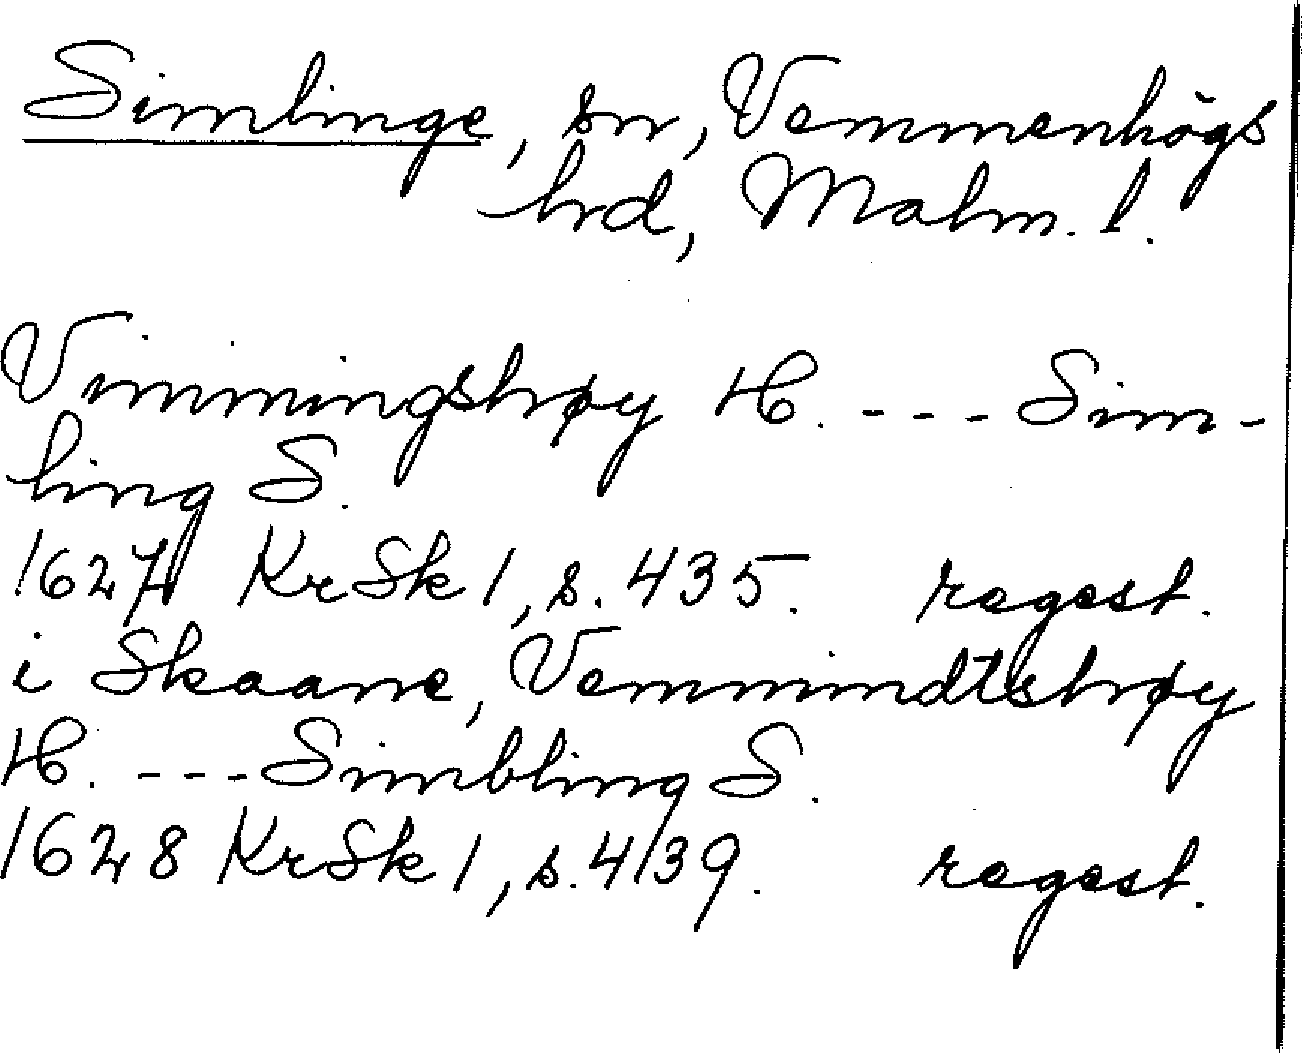 Simlinge, sn, Vemmenhögs
hrd, Malm. l.
Vimmingshøy H. --- Sim-
ling S.
1627 KrSk 1, s. 435. regest.
i Skaane, Vemmindtshøy
H. --- Simbling S.
1628 KrSk 1, s. 439. regest.